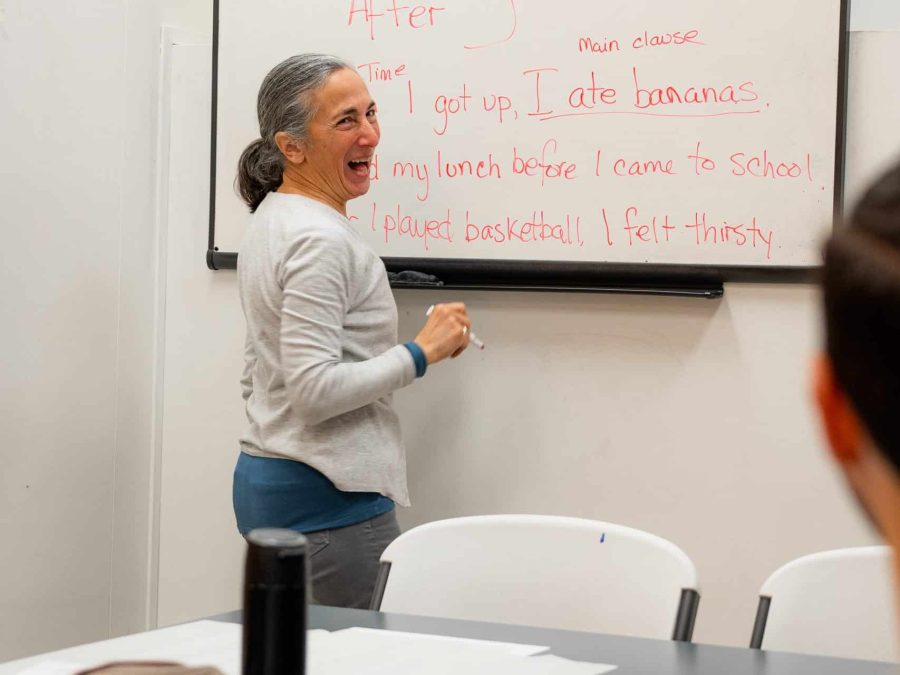 After
Main clause
Time
I got up, I ate bananas.
my lunch before I came to school.
I played basketball, I felt thirsty.